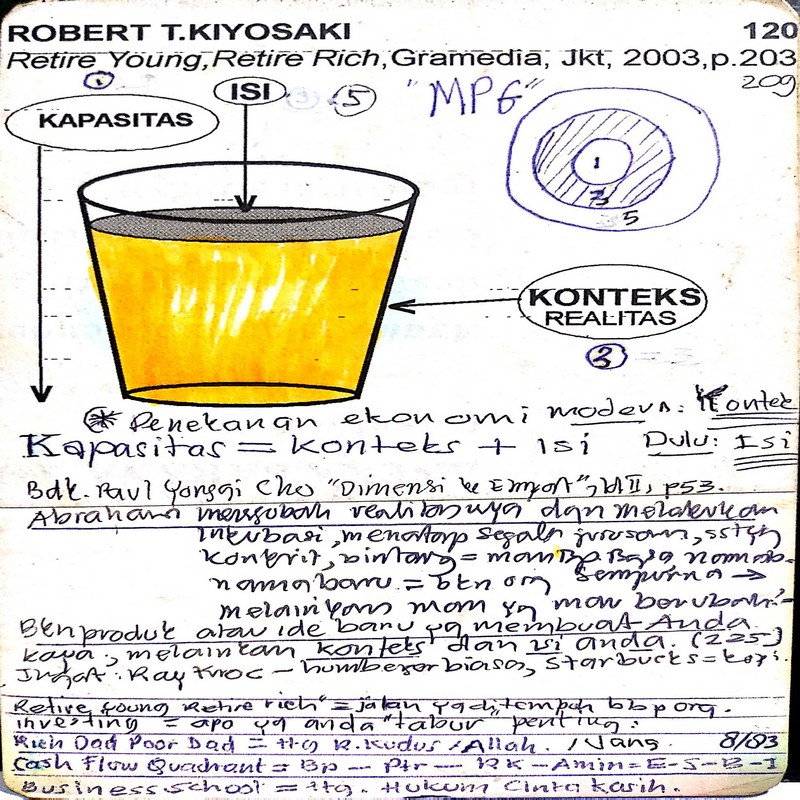 ROBERT T.KIYOSAKI 120
Retire Young,Retire Rich,Gramedia, Jkt, 2003,p.203
209
1
ISI
3 5
"MPG"
KAPASITAS
1
3
5
KONTEKS
REALITAS
2 = 3
Penekanan ekonomi modern: Konteks
Kapasitas = Konteks + Isi Dulu: Isi
Bdk. Paul Yonggi Cho "Dimensi ke Empat", Jld II, p53.
Abraham mengubah realitasnya dan melakukan
inkubasi, menatap segala jurusan, sstg yg
konkrit, bintang = nama
nama baru = bkn org sempurna →
melainkan mau yg mau berubah
Bkn produk atau ide baru yg membuat Anda
kaya, melainkan konteks dan isi anda. (225)
Ingat. Ray Kroc – humberger biasa, Starbucks = kopi.
Retire Young Retire rich" = jalan yg ditempuh bbp org.
investing = apa yg anda "tabur" penting.
Rich Dad Poor Dad = ttg R. Kudus / Allah. / Uang. 8/03
Cash Flow Quadrant = Bp – Ptr – RK – Amin = E-S-B-I
Business School = ttg. Hukum Cinta kasih.